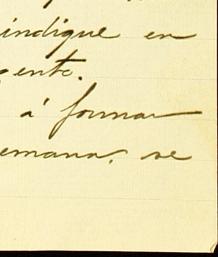 indique en
ente.
á formar
emana. se